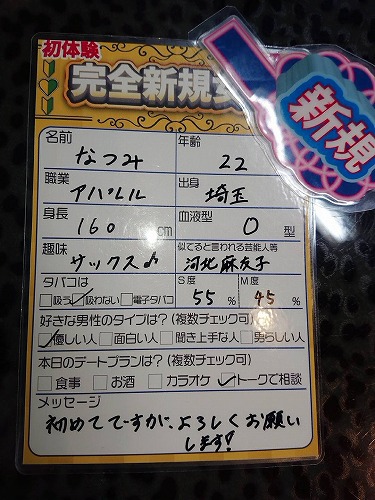 初体験
完全新規女
新規
名前 なつみ 年齢 22
職業 アパレル 出身 埼玉
身長 160 cm 血液型 O 型
趣味 サックス♪ 似てると言われる芸能人等 河北麻友子
タバコは S度 M度
□吸う ☑吸わない □電子タバコ 55 % 45 %
好きな男性のタイプは?(複数チェック可)
☑優しい人 □面白い人 □聞き上手な人 □男らしい人
本日のデートプランは?(複数チェック可)
□食事 □お酒 □カラオケ ☑トークで相談
メッセージ
初めてですが、よろしくお願い
します!